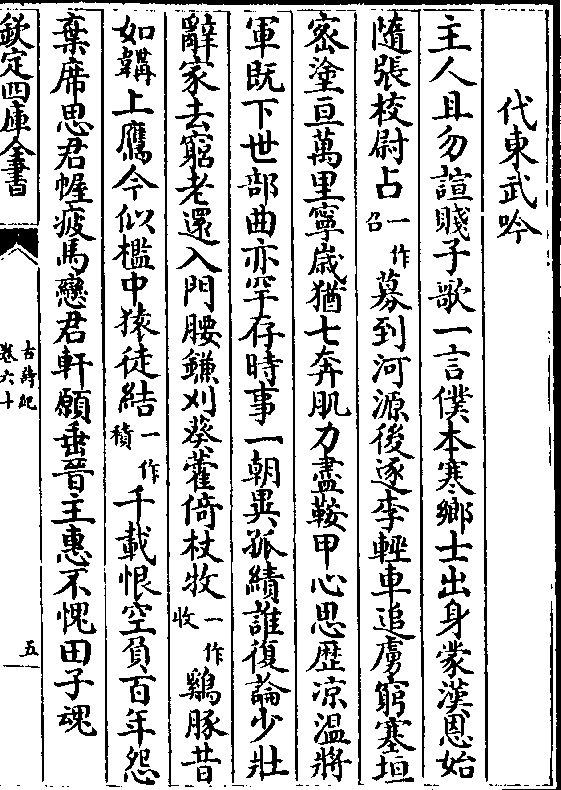 代東武吟
主人且勿諠賤子歌一言僕本寒鄉士出身蒙漢恩始
隨張校尉占一作召募到河源後逐李輕車追虜窮塞垣
宻塗亘萬里寧嵗猶七奔肌力盡鞍甲心思歴凉溫將
軍既下世部曲亦罕存時事一朝異孤績誰復論少壯
辭家去窮老還入門腰鎌刈葵藿倚杖牧一作收鷄豚昔
如韝上鷹今似檻中猿徒結一作積千載恨空負百年怨
棄席思君幄疲馬戀君軒願垂晉主惠不愧田子魂
欽定四庫全書
古詩紀
卷六十
五